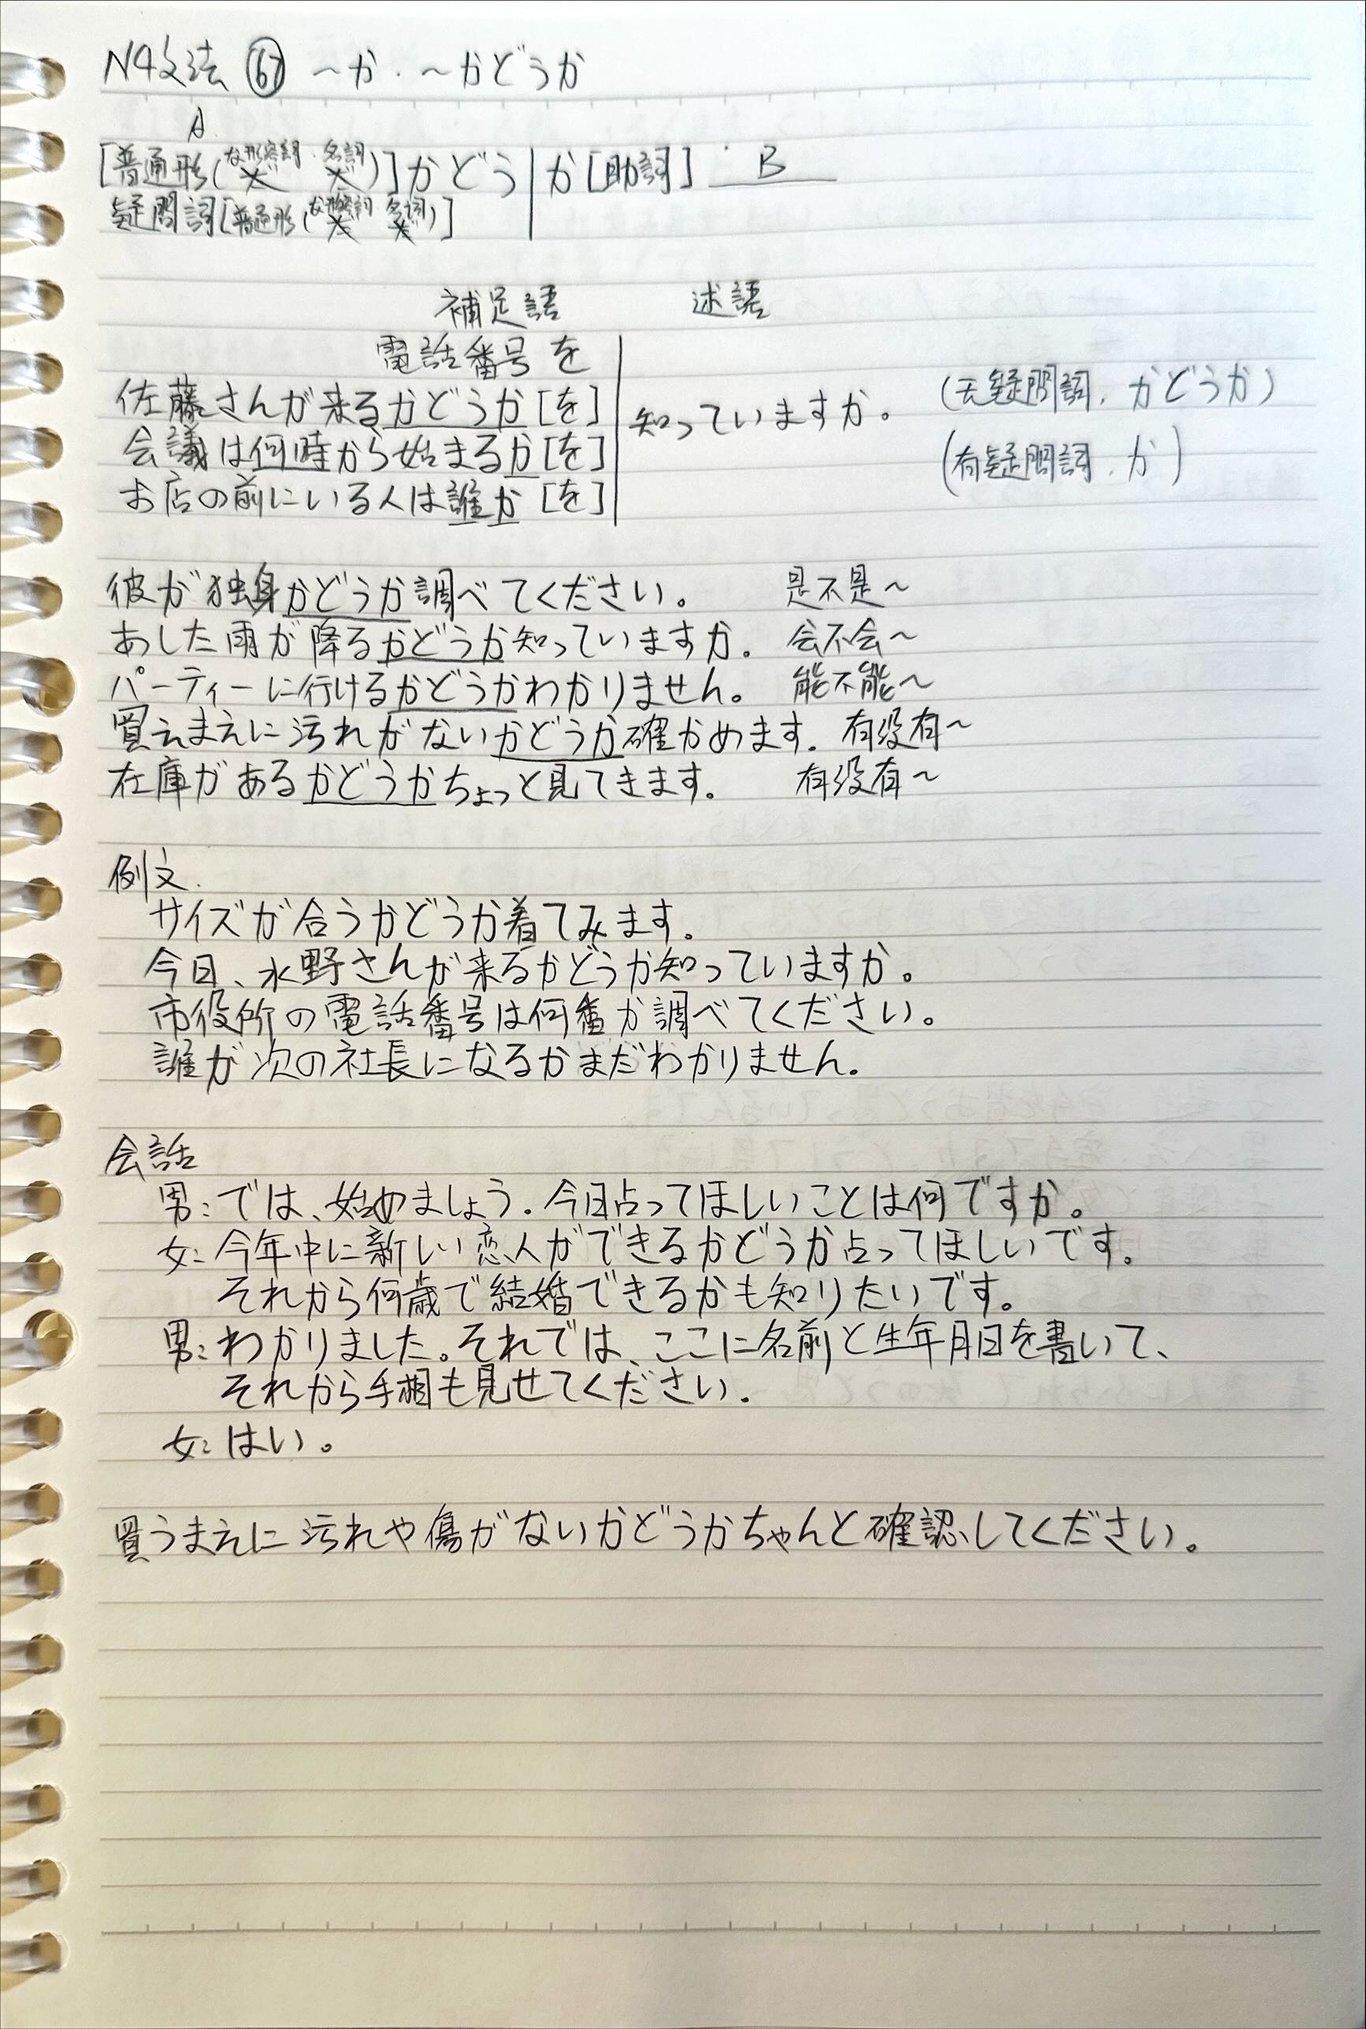 N4文法 67 ~か・~かどうか
A
[普通形(な形容詞・名詞)]かどう か[助詞] B
だ だ
疑問詞[普通形(な形容詞 名詞)]
だ だ
補足語 述語
電話番号を
佐藤さんが来るかどうか[を] 知っていますか。 (无疑問詞,かどうか)
会議は何時から始まるか[を] (有疑問詞,か)
お店の前にいる人は誰か[を]
彼が独身かどうか調べてください。 是不是~
あした雨が降るかどうか知っていますか。 会不会~
パーティーに行けるかどうかわかりません。 能不能~
買えまえに汚れがないかどうか確かめます。 有没有~
在庫があるかどうかちょっと見てきます。 有没有~
例文.
サイズが合うかどうか着てみます。
今日、水野さんが来るかどうか知っていますか。
市役所の電話番号は何番か調べてください。
誰が次の社長になるかまだわかりません。
会話
男:では、始めましょう。今日占ってほしいことは何ですか。
女:今年中に新しい恋人ができるかどうか占ってほしいです。
それから何歳で結婚できるかも知りたいです。
男:わかりました。それでは、ここに名前と生年月日を書いて、
それから手相も見せてください。
女:はい。
買うまえに汚れや傷がないかどうかちゃんと確認してください。